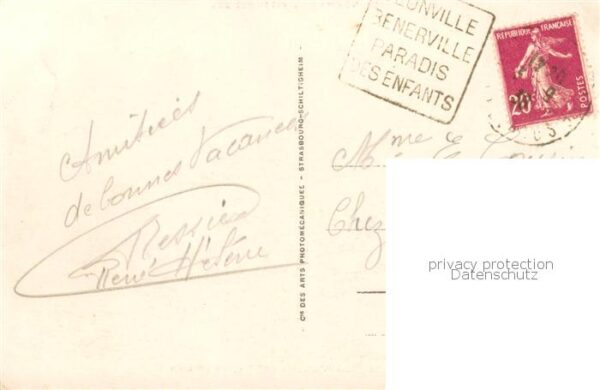 BENERVILLE
PARADIS
DES ENFANTS
REPUBLIQUE FRANÇAISE
20c
POSTES
Amitiés
de bonnes Vacances
René Hélène
Cie DES ARTS PHOTOMÉCANIQUES - STRASBOURG-SCHILTIGHEIM
Mme
Chez
privacy protection
Datenschutz